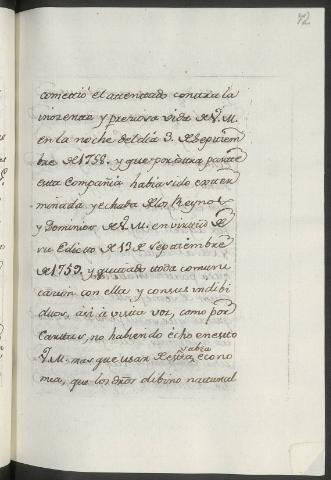 72
cometió el attentado contra la
inozente y preziosa vida de V. M.
en la noche del dia 3. de Septiem
bre de 1758. y que por otra parte
esta Compañia habia sido exter
minada y echada de los Reynos
y Dominios de V. M. en virtud de
su Edicto de 19 de Septiembre
de 1759. y quitado toda comuni
cazion con ella y con sus indibi
duos, asi à viva voz, como por
Cartas, no habiendo echo en esto
V. M. mas que usar de esta sabia econo
mia, que los dros dibino natural